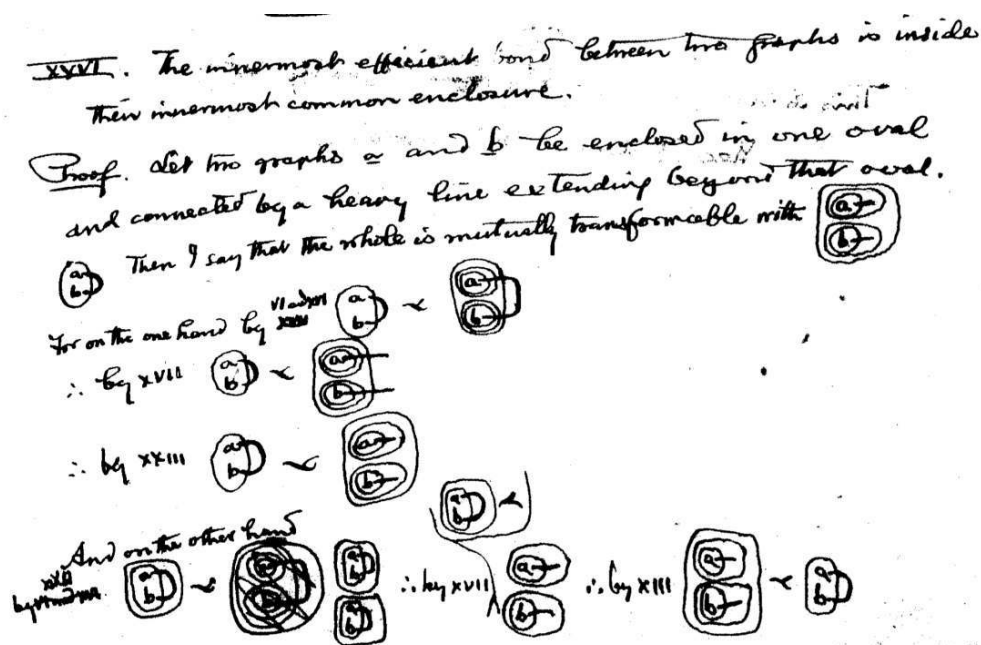 XXVI. The innermost efficient bond between two graphs is inside
their innermost common enclosure.
Proof. Let two graphs a and b be enclosed in one oval
and connected by a heavy line extending beyond that oval.
a b Then I say that the whole is mutually transformable with a b
For on the one hand by VI and XVI XXIII a b ⤙ a b
∴ by XVII a b ⤙ a b
∴ by XXIII a b ⤙ a b
a b ⤙
And on the other hand
by a b ⤙ a b a b ∴ by XVII a b ∴ by XIII a b ⤙ a b